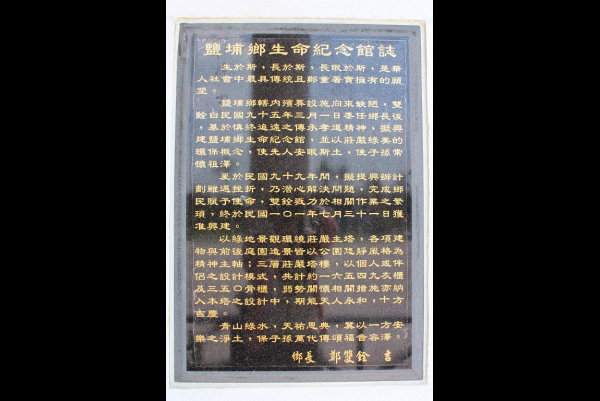 鹽埔鄉生命紀念館誌
生於斯，長於斯，長眠於斯，是華
人社會中最具傳統且鄭重者實擁有的願
望。
鹽埔鄉轄內殯葬設施向來缺陋，雙
銓自民國九十五年三月一日蒞任鄉長後
，基於慎終追遠之傳承孝道精神，擬興
建鹽埔鄉生命紀念館，並以莊嚴綠美的
環保概念，使先人安眠斯土，使子孫常
懷祖澤。
爰於民國九十九年間，擬提興辦計
劃雖過挫折，乃潛心解決問題，完成鄉
民賦予使命，雙銓戮力於相關作業之繁
瑣，終於民國一〇一年七月三十一日獲
准興建。
以綠地景觀環繞莊嚴主塔，各項建
物與前後庭園造景公園恣風格為
精神主軸；三層莊嚴塔樓以靜個成伴
侶之設計模式，共計約一六五四九灰櫃
及三五〇骨櫃，弱勢關懷相關措施亦納
入本塔之設計中，期能天人永和，十方
吉慶。
青山綠水，天祐恩典，冀以一方安
樂之淨土，保子孫萬代傳頌福音容澤。
鄉長 鄭雙銓 吉